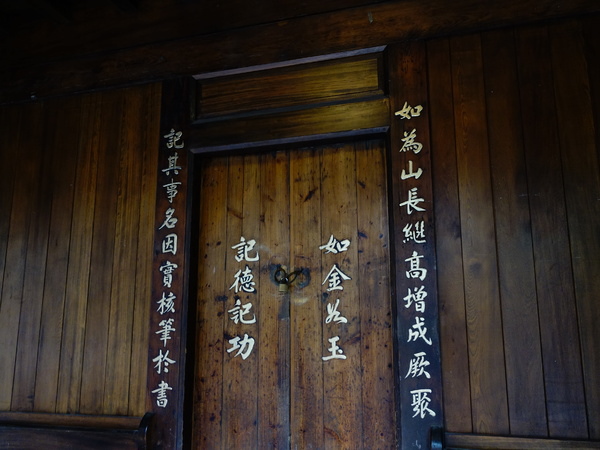 如為山長継高增成厥聚
如金如玉
記德記功
記其事名因實核筆於書